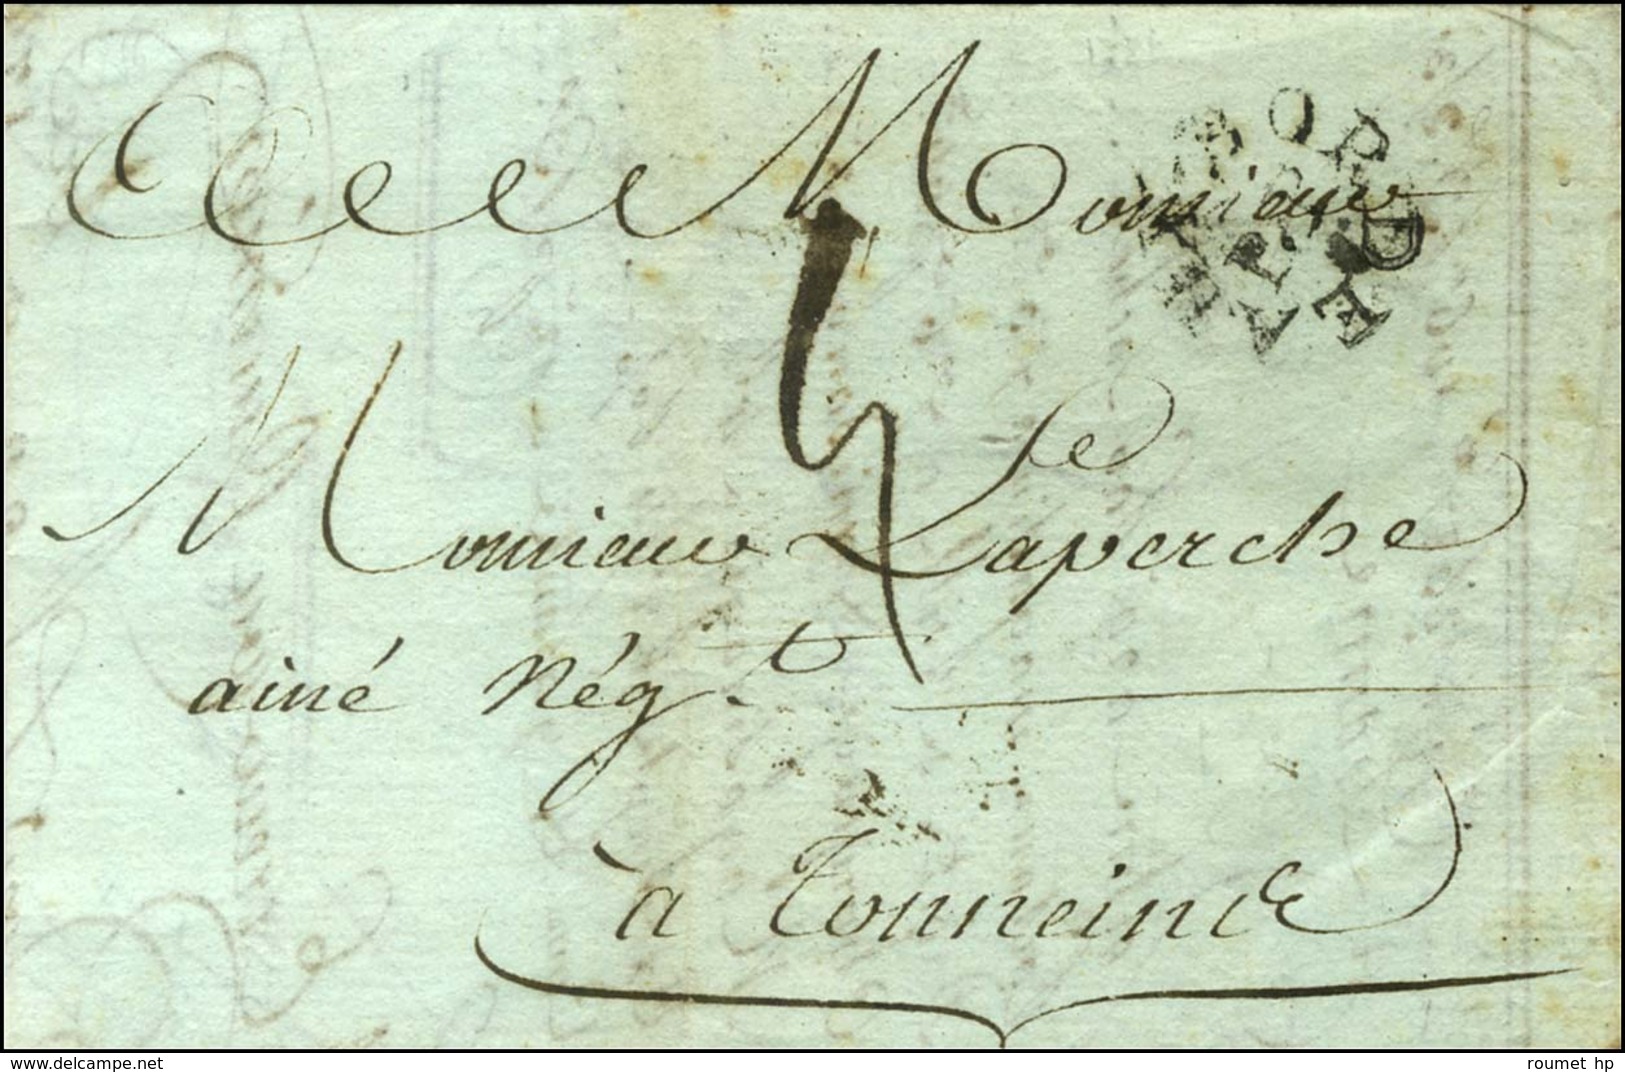 A Monsieur
Monsieur Laperche
ainé Nég.t
à Tonneinds
BORDE
www.delcampe.net
roumet hp